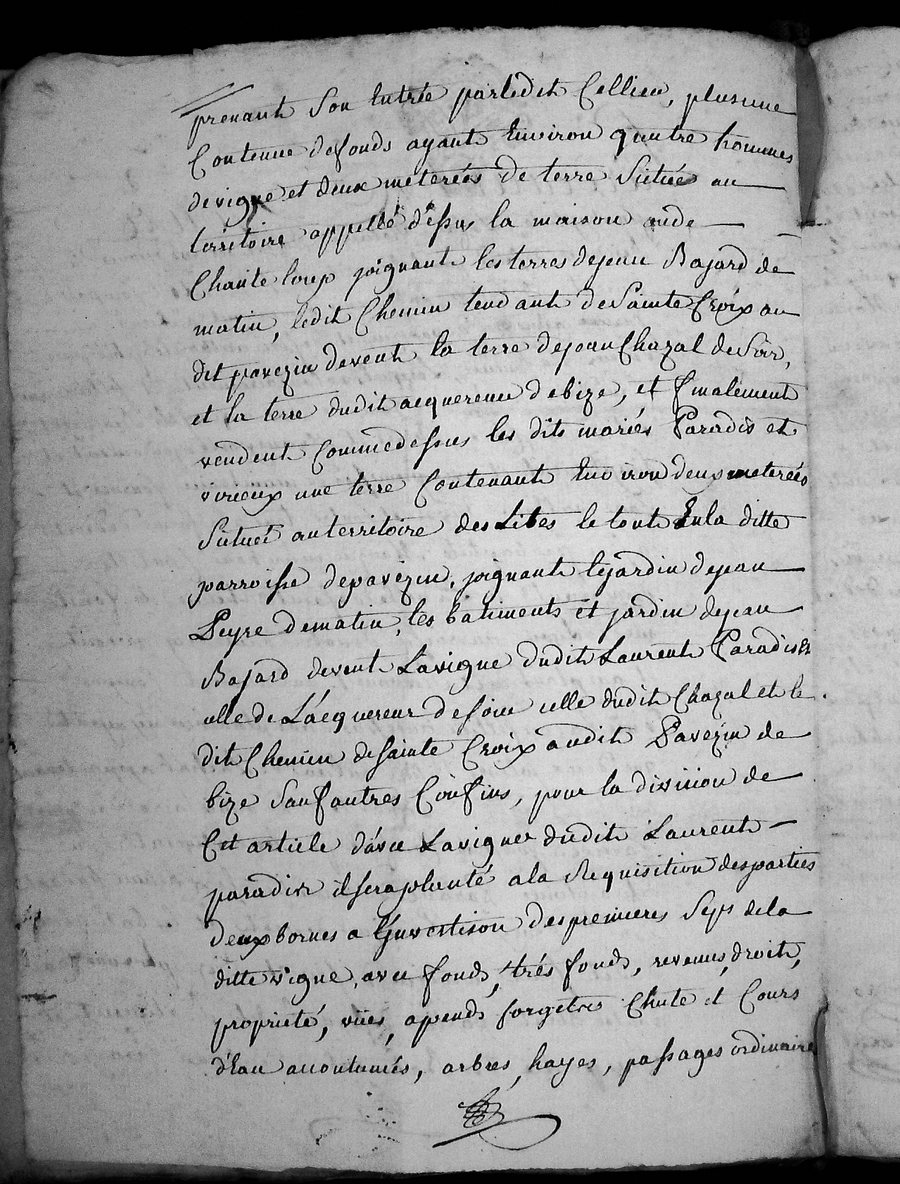 prenant Son Entrée par ledit Cellier, plus une
Contenue de fonds ayant Environ quatre hommes
de vigne et deux meterées de terre Situées au
territoire appellé dessus la maison ou de
Chante loup joignant les terres de jean Bajard de
matin, ledit Chemin tendant de Sainte Croix au
dit pavezin de vent la terre de jean Chazal de Soir,
et la terre dudit acquereur de bize, et finalement
vendent Comme dessus les dits mariés Paradis et
virieux une terre Contenant Environ deux meterées
Situeé au territoire des Lites le tout En la ditte
parroisse de pavezin, joignant le jardin de jean
Peyre de matin, les bâtiments et jardin de jean
Bajard de vent La vigne dudit Laurent Paradis Et
celle de L'acquereur de soir celle dudit Chazal et le
dit Chemin de Sainte Croix audit Pavezin de
bize Sauf autres Confins, pour la division de
Cet article d'avec La vigne dudit Laurent
paradis il sera planté a la Requisition des parties
deux bornes a des premieres Seps de la
ditte vigne, avec fonds, trés fonds, revenus, droits,
proprieté, vües, apends forgets Chute et Cours
d'Eau accoutumés, arbres, hayes, passages ordinaires